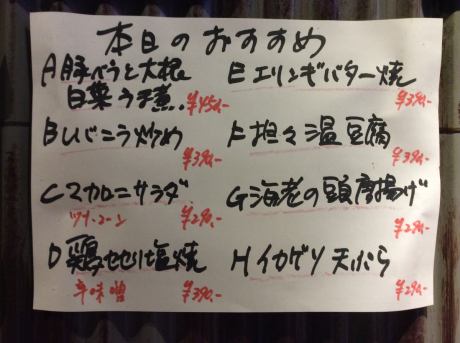 本日のおすすめ
A豚バラと大根
白菜うま煮..¥450-
Bレバニラ炒め
¥390-
Cマカロニサラダ
ツナ・コーン ¥290-
D鶏せせり塩焼
辛味噌 ¥390-
Eエリンギバター焼
¥390-
F担々温豆腐
¥390-
G海老の頭唐揚げ
¥290-
Hイカゲソ天ぷら
¥290-